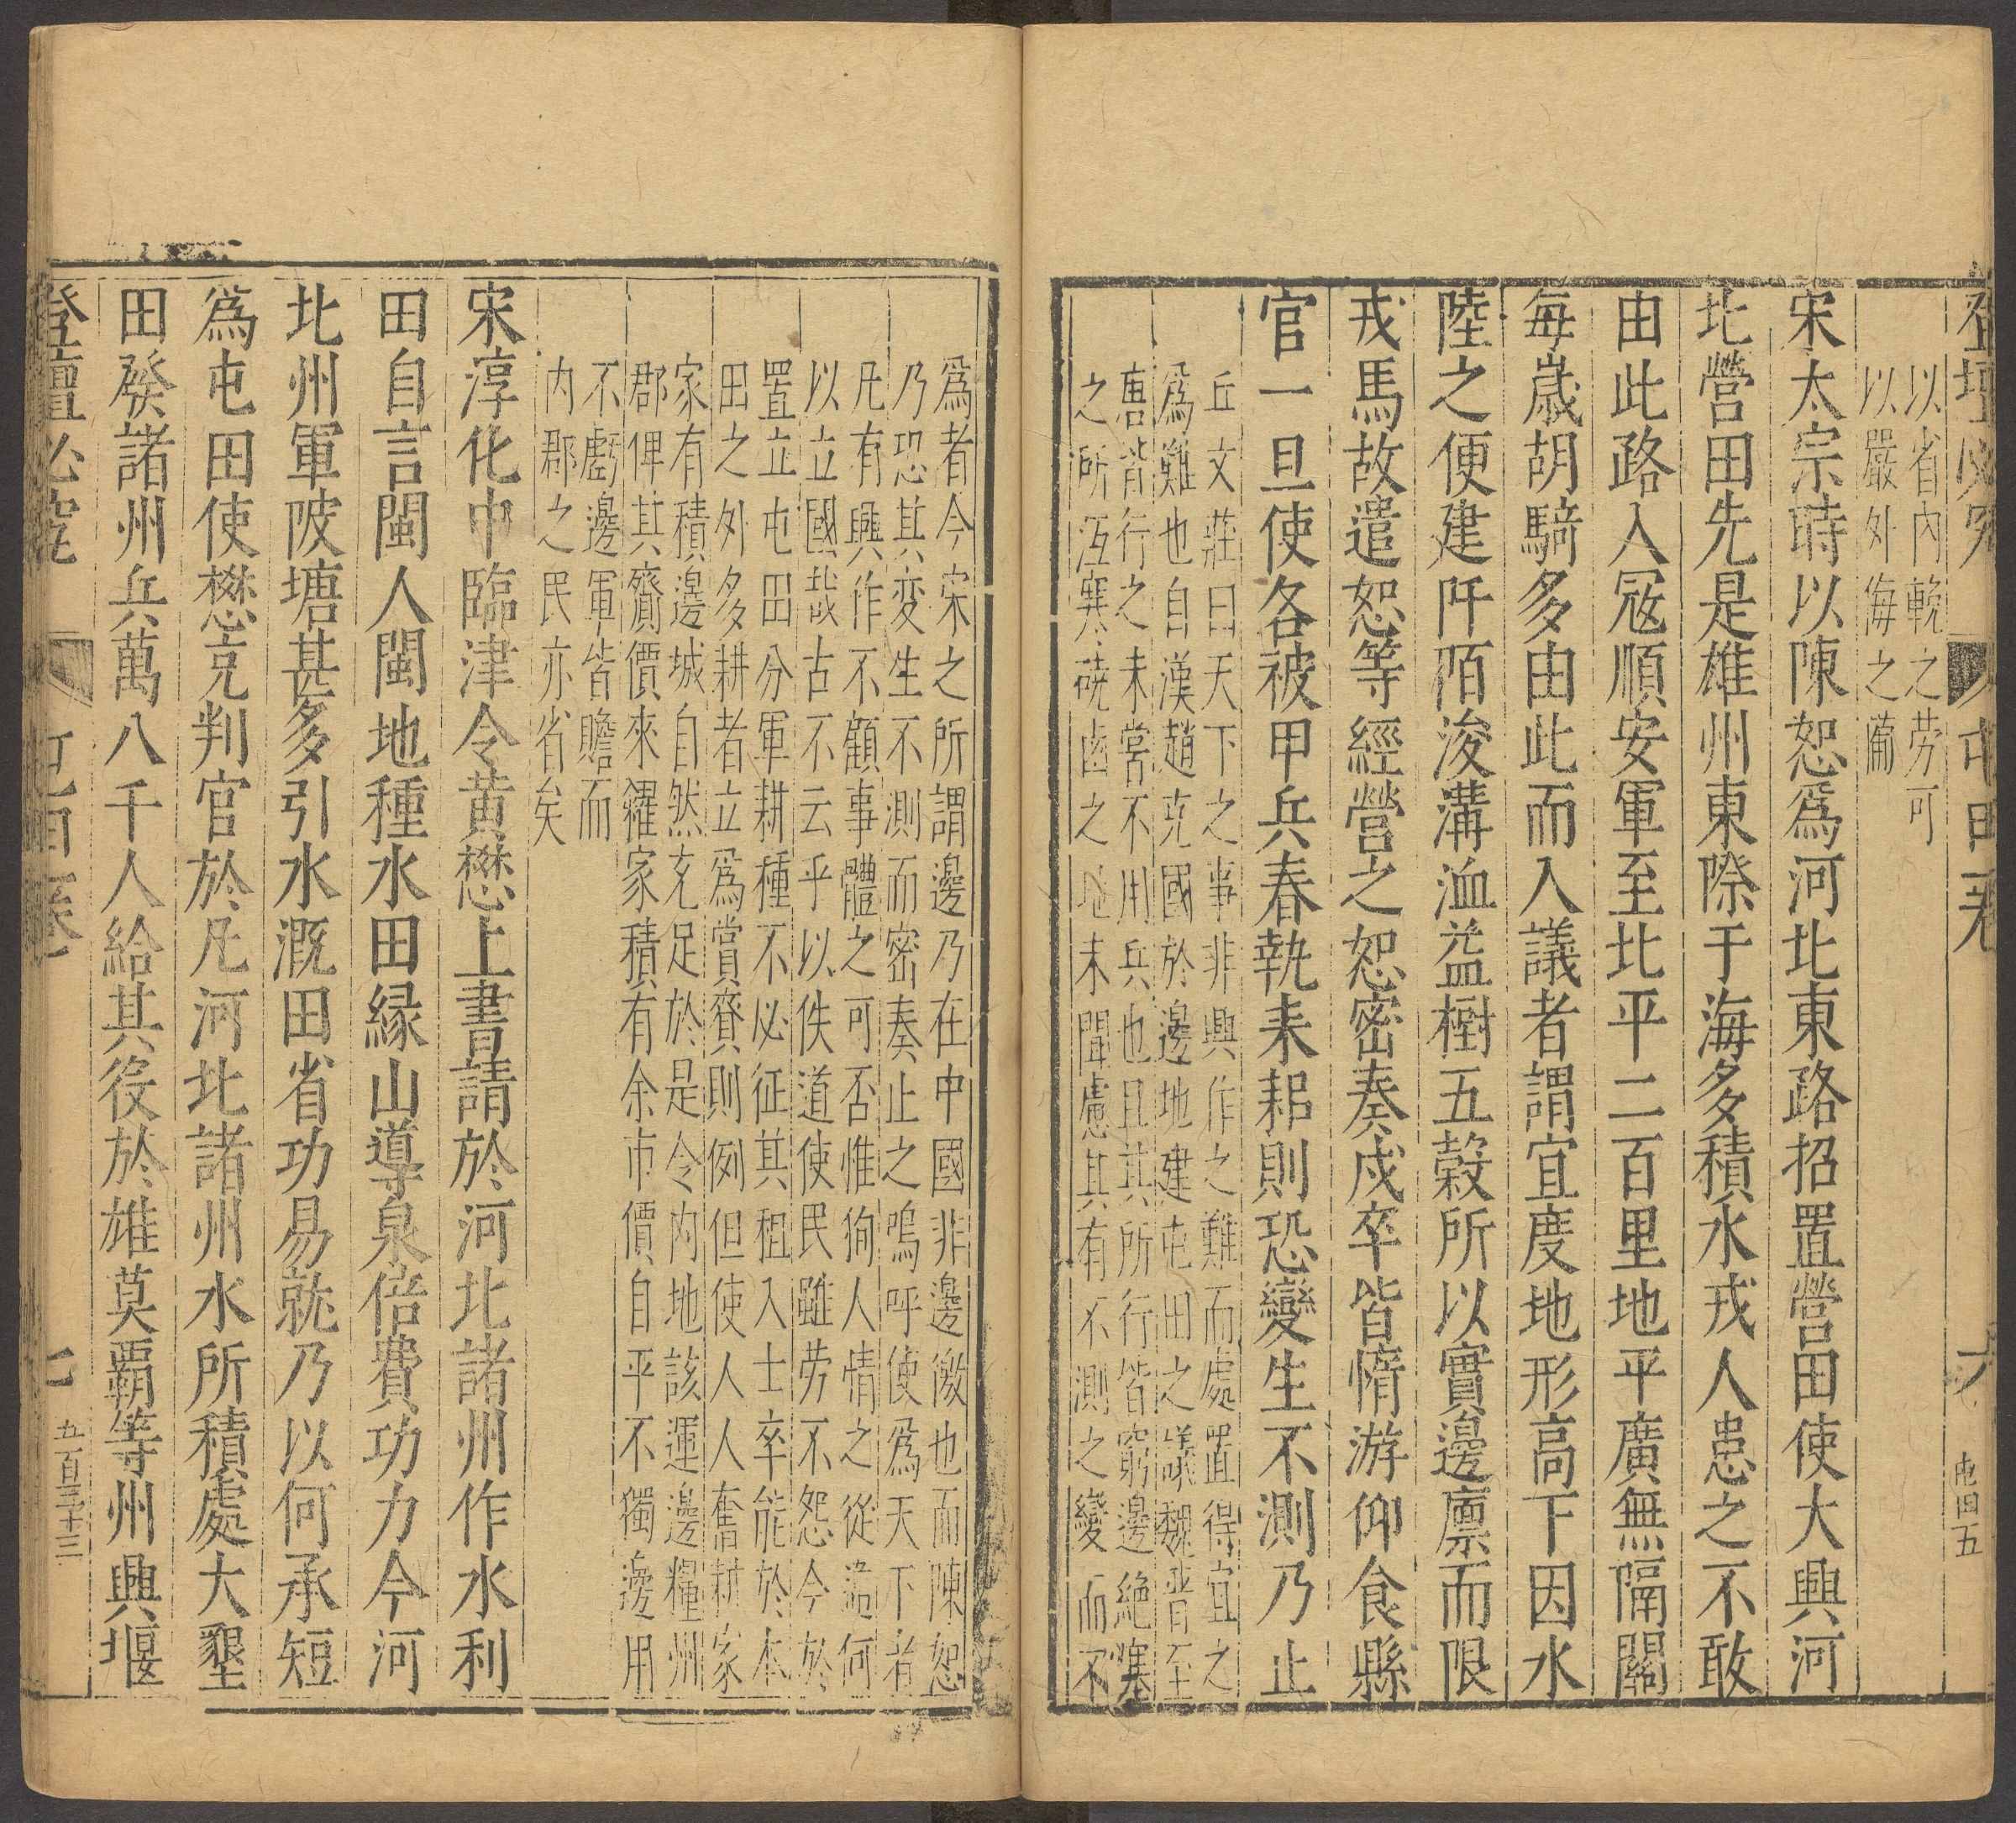 登壇必究 屯田二卷 六 屯田五
以省內輓之勞可
以嚴外侮之備
宋太宗時以陳恕爲河北東路招置營田使大興河
北營田先是雄州東際于海多積水戎人患之不敢
由此路入冦順安軍至北平二百里地平廣無隔閡
每歲胡騎多由此而入議者謂宜度地形高下因水
陸之便建阡陌浚溝洫益樹五穀所以實邊廪而限
戎馬故遣恕等經營之恕密奏戍卒皆惰游仰食縣
官一旦使各被甲兵春執耒耜則恐變生不測乃止
丘文莊曰天下之事非興作之難而處置得宜之
爲難也自漢趙充國於邊地建屯田之議魏晋至
唐皆行之未嘗不用兵也且其所行皆窮邊絶塞
之所沍寒磽鹵之地未聞慮其有不測之變而不
爲者今宋之所謂邊乃在中國非邊徼也而陳恕
乃恐其变生不測而密奏止之嗚呼使爲天下者
凡有興作不顧事體之可否惟狥人情之從違何
以立國哉古不云乎以佚道使民雖劳不怨今於
置立屯田分軍耕種不必征其租入士卒能於本
田之外多耕者立爲賞賚則例但使人人奮耕家
家有積邊城自然充足於是令内地該運邊糧州
郡俾其齎價來糴家積有余市價自平不獨邊用
不虧邊軍皆贍而
内郡之民亦省矣
宋淳化中臨津令黄懋上書請於河北諸州作水利
田自言閩人閩地種水田緣山導泉倍費功力今河
北州軍陂塘甚多引水溉田省功易就乃以何承短
爲屯田使懋充判官於凡河北諸州水所積處大墾
田發諸州兵萬八千人給其役於雄莫覇等州興堰
登壇必究 屯田二卷 七 五百三十三